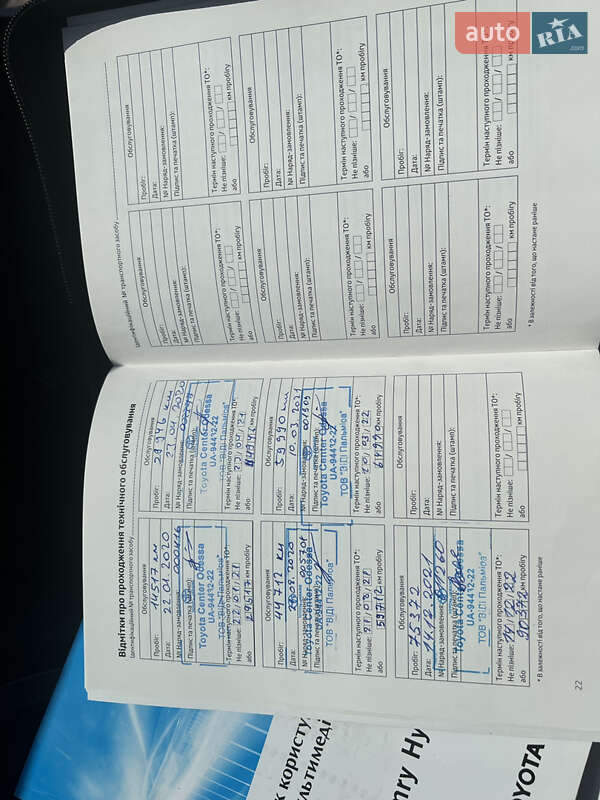 auto RIA.com
Відмітки про проходження технічного обслуговування
Ідентифікаційний № транспортного засобу
Обслуговування
Пробіг: 14517 км
Дата: 22.01.2020
№ Наряд-замовлення:
Підпис та печатка (штамп):
Toyota Center Odessa
UA-94412-22
ТОВ "ВІДІ Пальміра"
Термін наступного проходження ТО*:
Не пізніше: 22/01/21
або км пробігу
Обслуговування
Пробіг: 29946 км
Дата:
№ Наряд-замовлення:
Підпис та печатка (штамп):
Toyota Center Odessa
UA-94412-22
ТОВ "ВІДІ Пальміра"
Термін наступного проходження ТО*:
Не пізніше:
або км пробігу
Обслуговування
Пробіг: 44712 км
Дата:
№ Наряд-замовлення:
Підпис та печатка (штамп):
Toyota Center Odessa
UA-94412-22
ТОВ "ВІДІ Пальміра"
Термін наступного проходження ТО*:
Не пізніше:
або 59712 км пробігу
Обслуговування
Пробіг: 59990 км
Дата: 10.03.2021
№ Наряд-замовлення:
Підпис та печатка (штамп):
Toyota Center Odessa
UA-94412-22
ТОВ "ВІДІ Пальміра"
Термін наступного проходження ТО*:
Не пізніше: 10/03/22
або км пробігу
Обслуговування
Пробіг: 75372
Дата: 14.12.2021
№ Наряд-замовлення:
Підпис та печатка (штамп):
Toyota Center Odessa
UA-94412-22
ТОВ "ВІДІ Пальміра"
Термін наступного проходження ТО*:
Не пізніше: 14/12/22
або 90372 км пробігу
Обслуговування
Пробіг:
Дата:
№ Наряд-замовлення:
Підпис та печатка (штамп):
Термін наступного проходження ТО*:
Не пізніше:
або км пробігу
* В залежності від того, що настане раніше
22
Ідентифікаційний № транспортного засобу
Обслуговування
Пробіг:
Дата:
№ Наряд-замовлення:
Підпис та печатка (штамп):
Термін наступного проходження ТО*:
Не пізніше:
або км пробігу
Обслуговування
Пробіг:
Дата:
№ Наряд-замовлення:
Підпис та печатка (штамп):
Термін наступного проходження ТО*:
Не пізніше:
або км пробігу
Обслуговування
Пробіг:
Дата:
№ Наряд-замовлення:
Підпис та печатка (штамп):
Термін наступного проходження ТО*:
Не пізніше:
або км пробігу
Обслуговування
Пробіг:
Дата:
№ Наряд-замовлення:
Підпис та печатка (штамп):
Термін наступного проходження ТО*:
Не пізніше:
або км пробігу
Обслуговування
Пробіг:
Дата:
№ Наряд-замовлення:
Підпис та печатка (штамп):
Термін наступного проходження ТО*:
Не пізніше:
або км пробігу
Обслуговування
Пробіг:
Дата:
№ Наряд-замовлення:
Підпис та печатка (штамп):
Термін наступного проходження ТО*:
Не пізніше:
або км пробігу
* В залежності від того, що настане раніше
к користу
льтимеді
mry Hy
TOYOTA